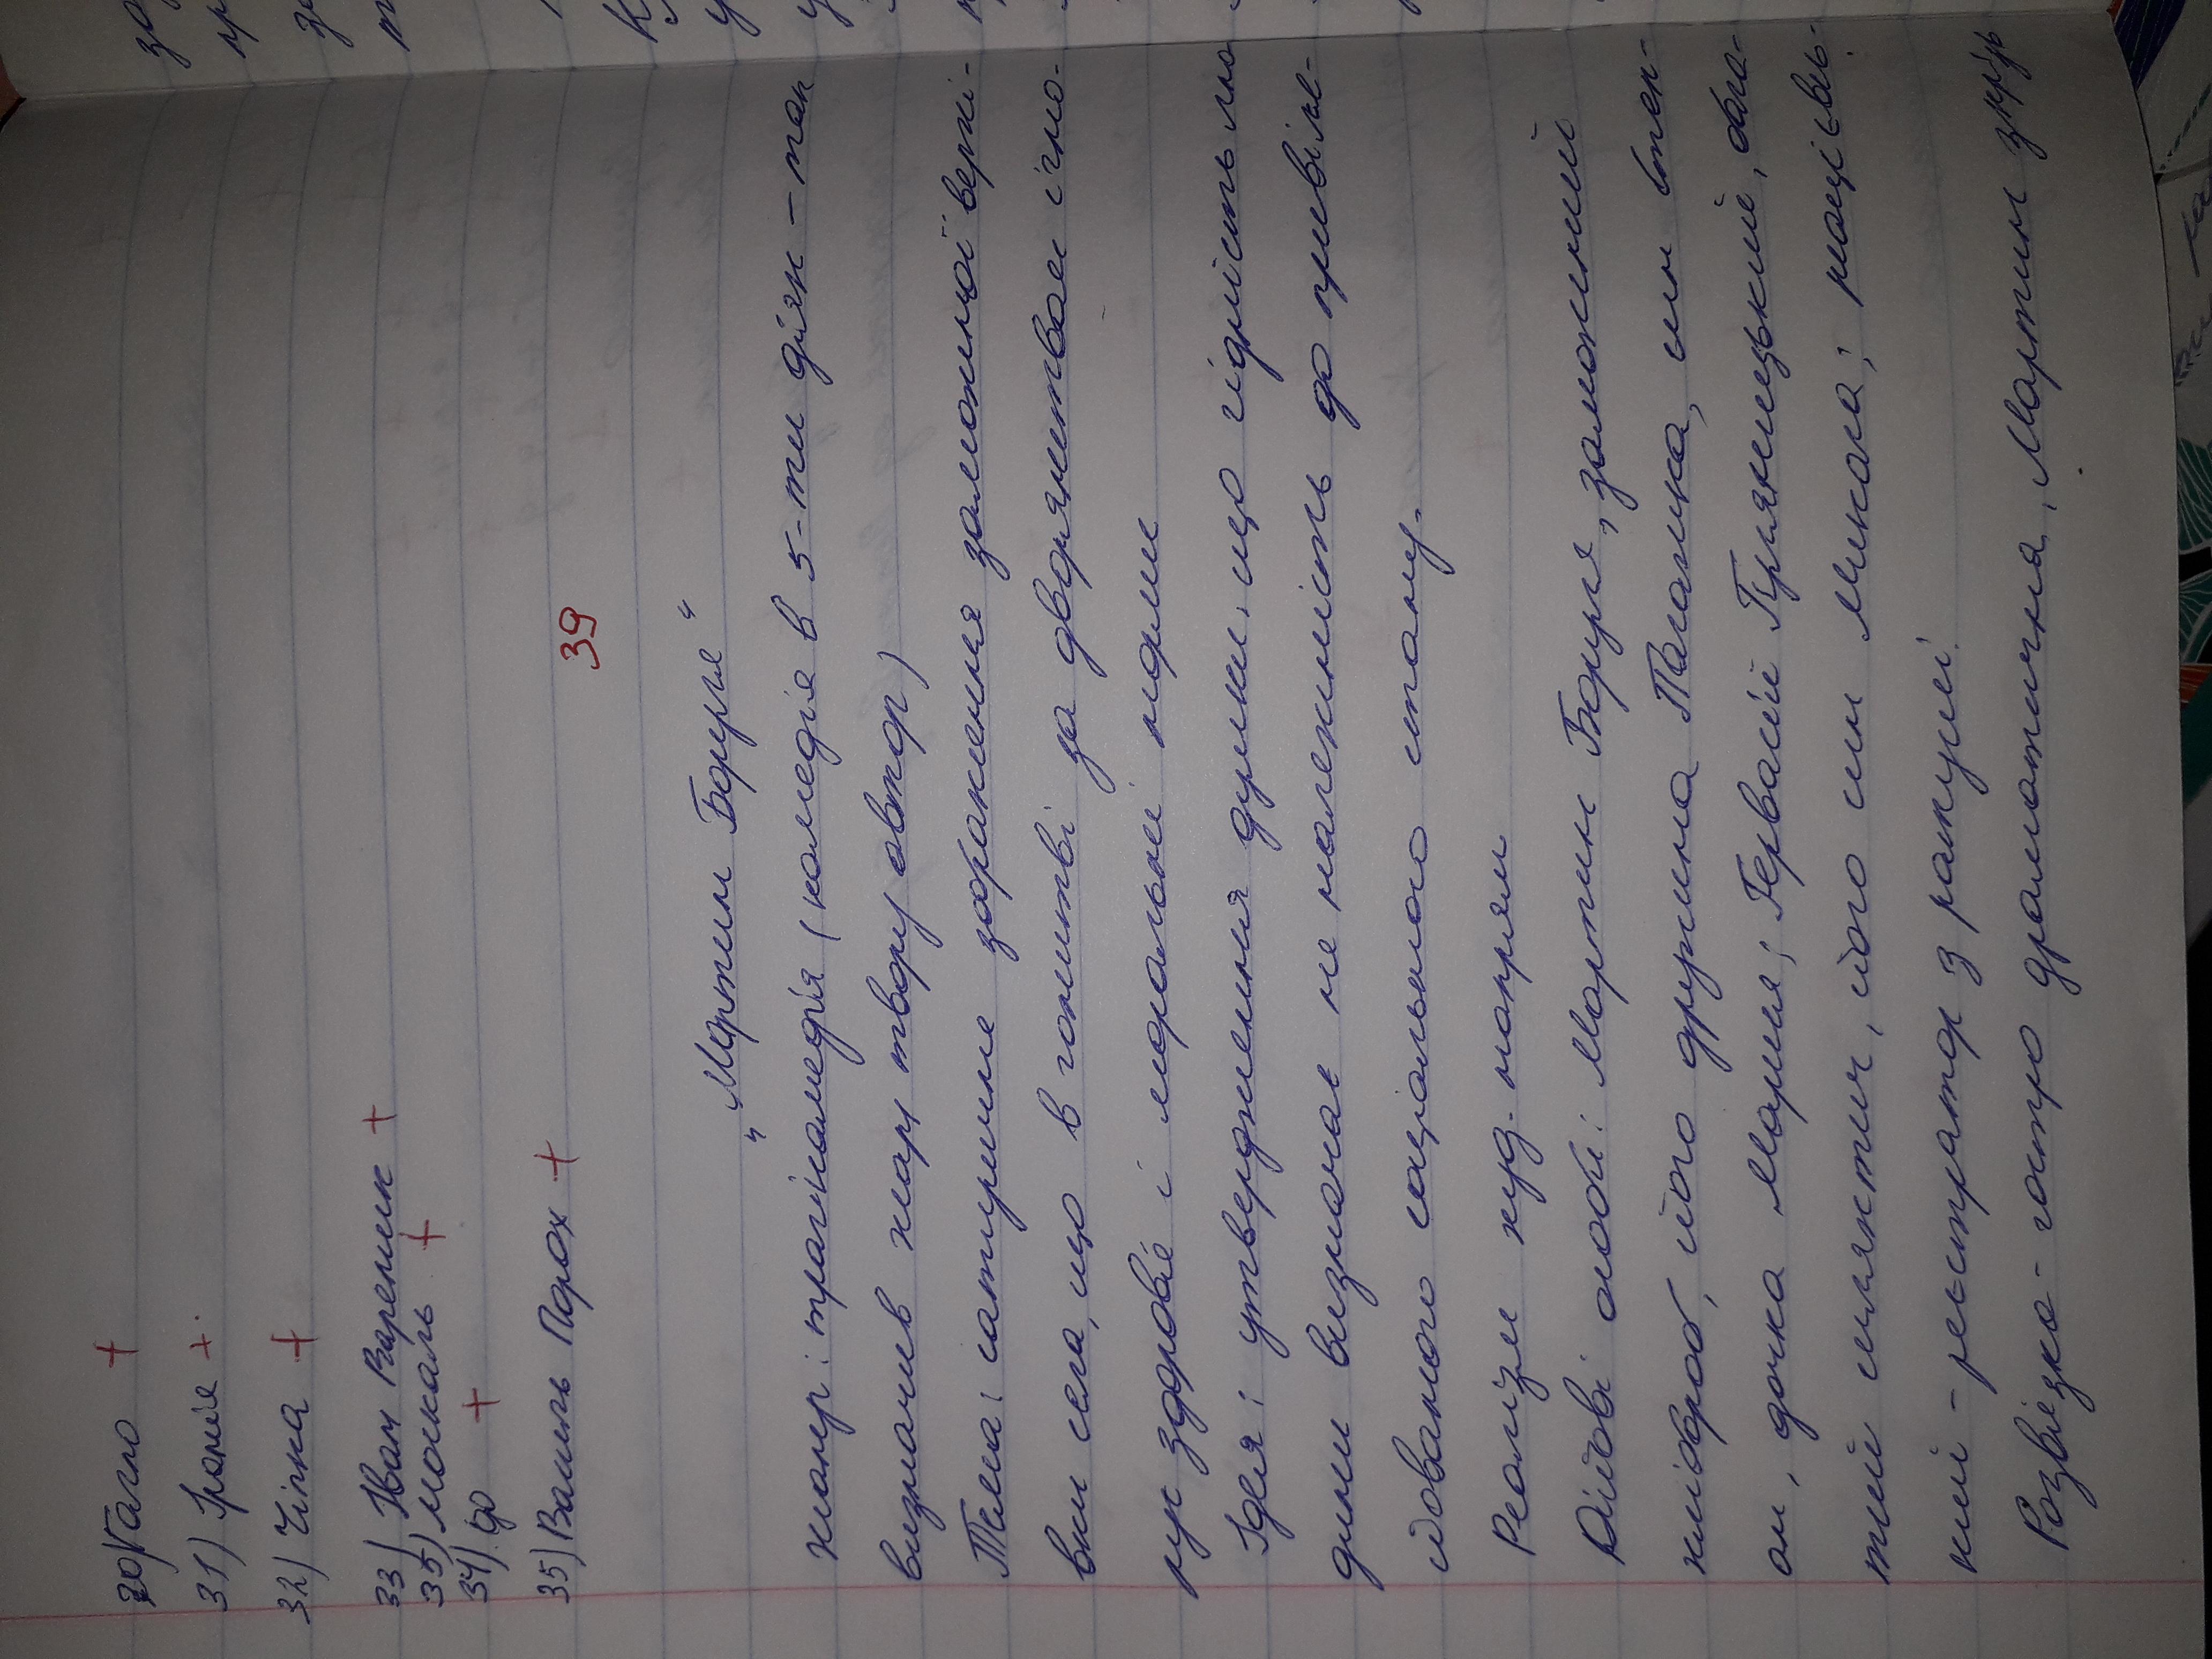 30) Тало +
31) Іронія +
32) Чіпка +
33) Іван Вареник +
35) москаль +
34) ф +
35) Василь Порох +
39
„Мартин Боруля“
жанр: трагікомедія (комедія в 5-ти діях – так
визначив жанр твору автор)
Тема: сатиричне зображення заможної верхі-
вки села, що в гонитві за дворянством ігно-
рує здорові і моральні норми
Ідея: утвердження думки, що гідність лю
дини визнача не належність до привіле-
йованого соціального стану.
Реалізм худ. напрям
Дійові особи: Мартин Боруля, заможний
хлібороб, його дружина Палажка, син Степ-
ан, дочка Марися; Гервасій Гуляницький, бага-
тий шляхтич, його син Микола; націєваь-
кий - реєстратор з ратуші.
Розвязка - гостро драматична, Мартин